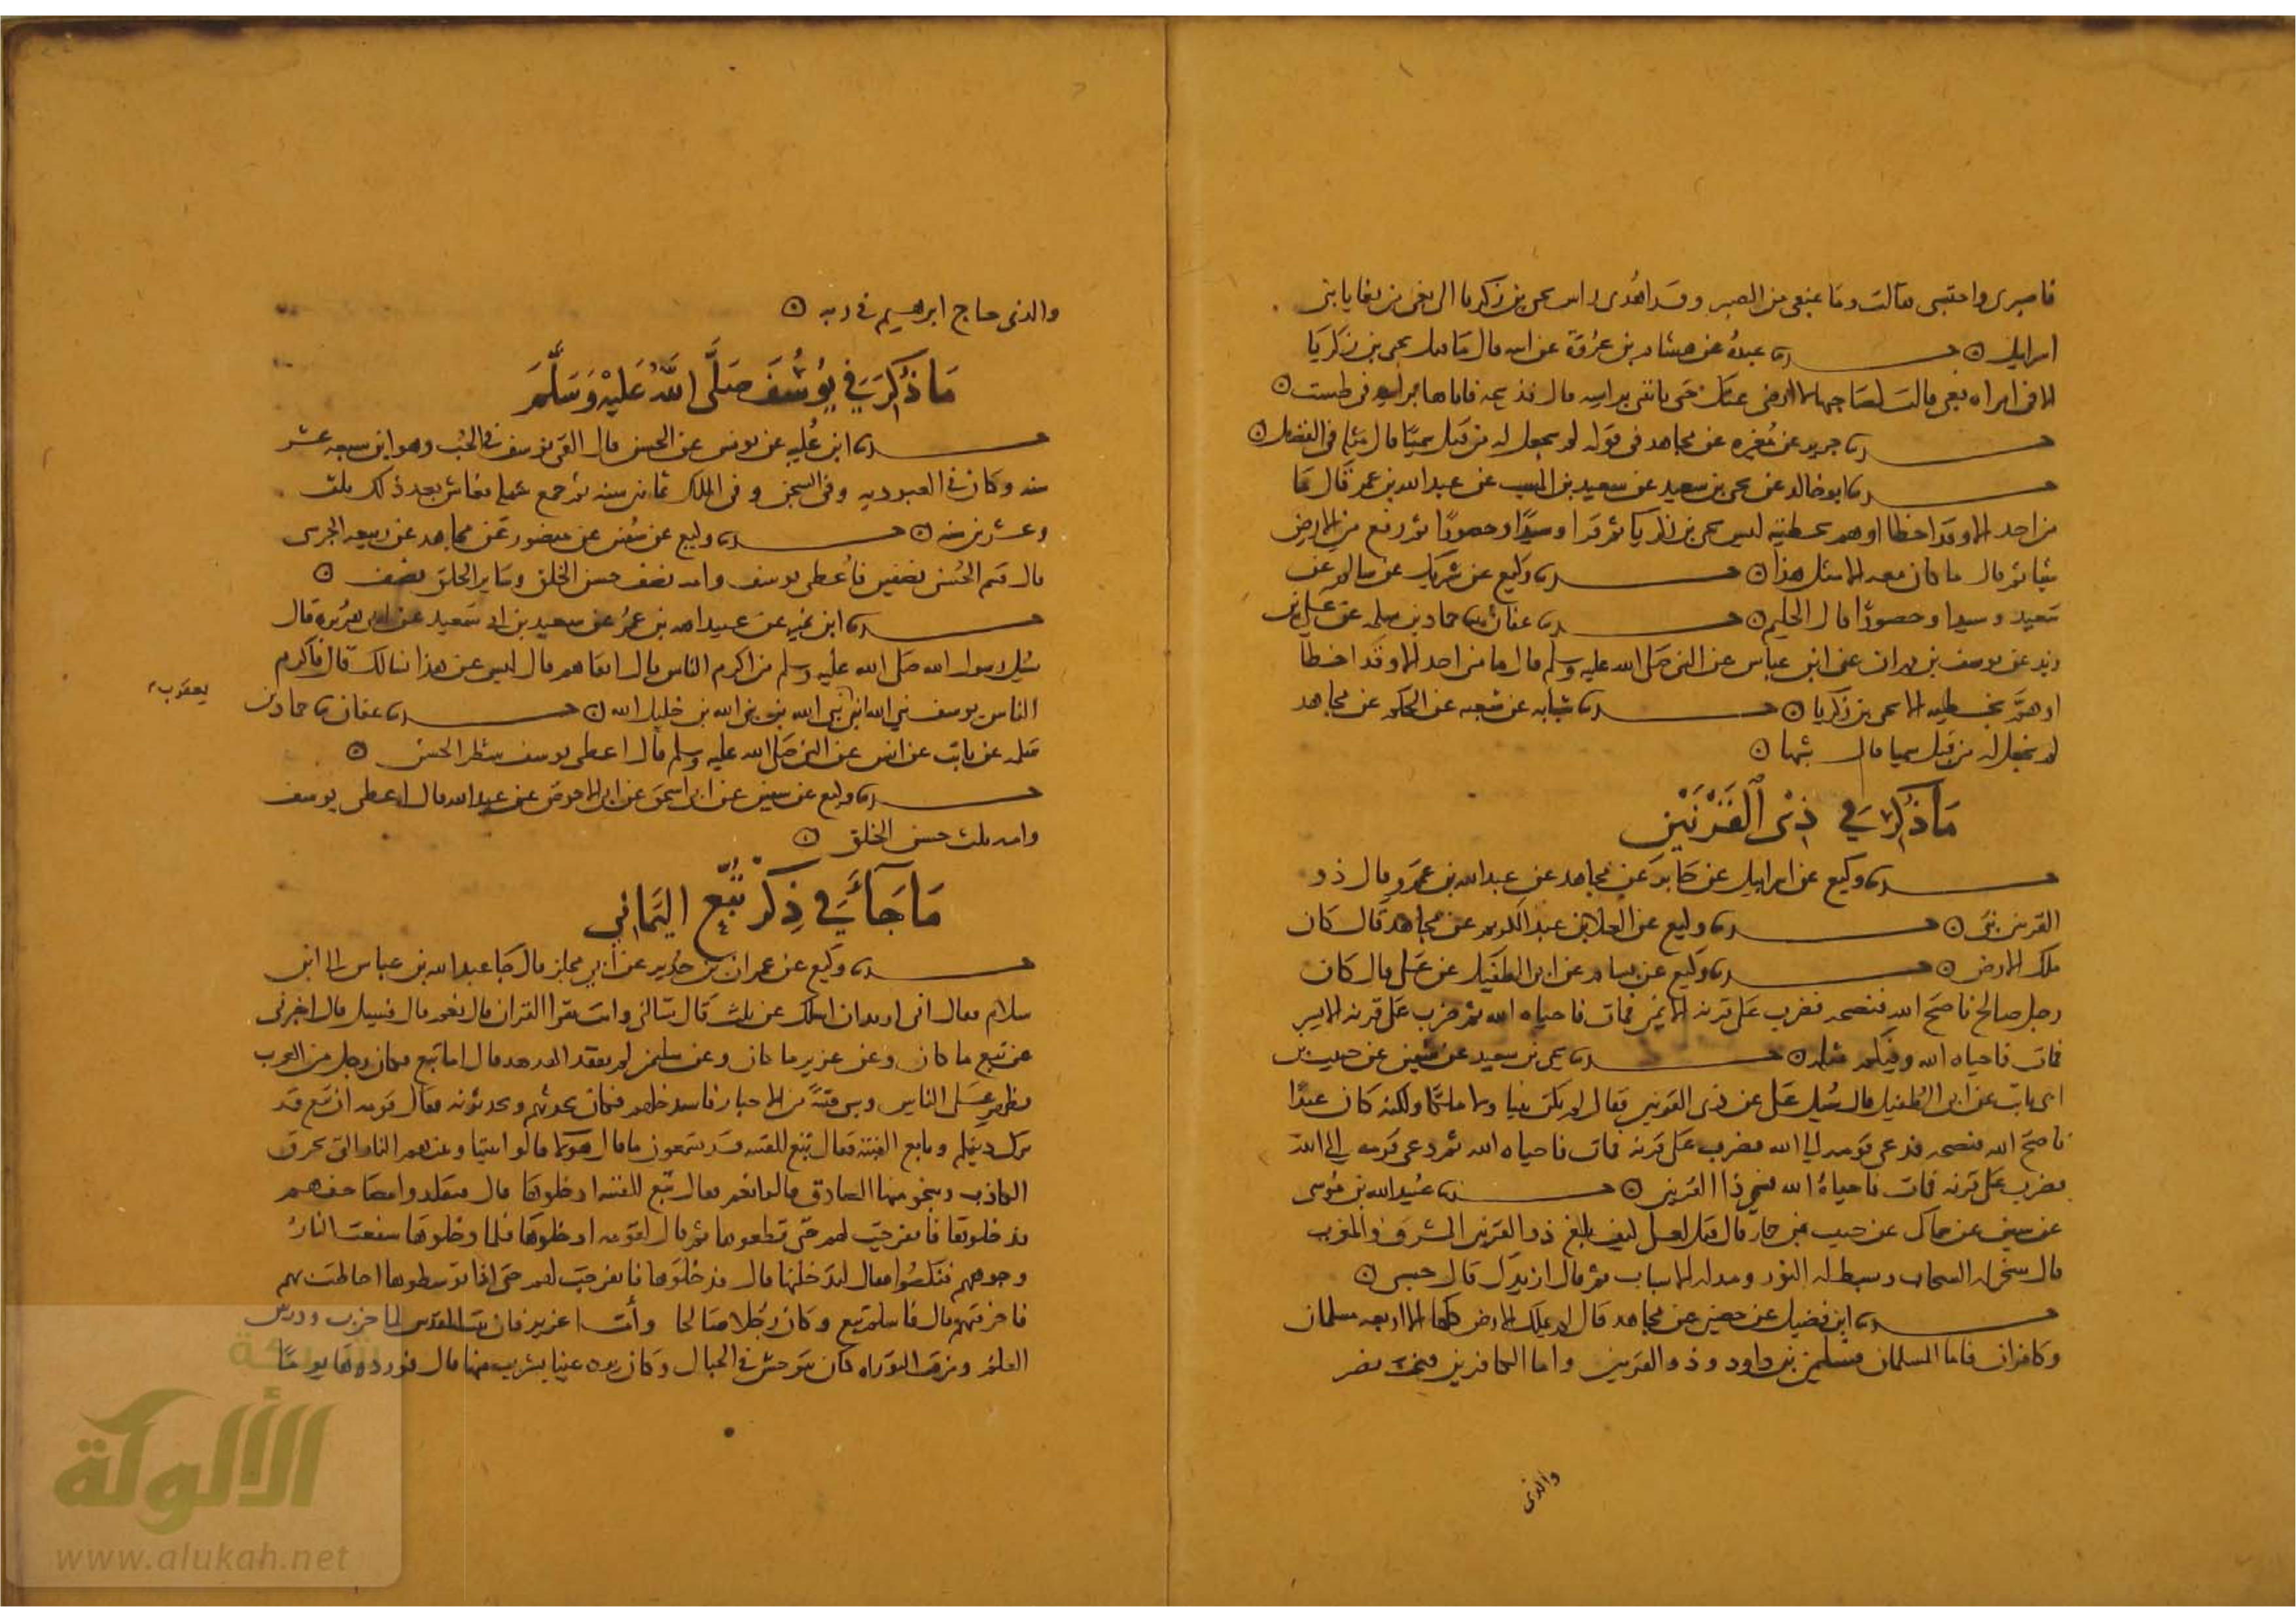 فاصبرى واحتسبى فقالت وما يمنعنى من الصبر وقد اهدى راس يحيى بن زكريا الى بغى من بغايا بنى
اسرايل ⊙ ثنا عبدة عن هشام بن عروة عن ابيه قال ما قتل يحيى بن زكريا
الا فى امراة بغى قالت لصاحبها لا ارضى عنك حتى تاتينى براسه قال فذبحه فاتاها براسه فى طست ⊙
ثنا جرير عن مغيره عن مجاهد فى قوله لم نجعل له من قبل سميا قال مثلا فى الفضل ⊙
ثنا ابو خالد عن يحيى بن سعيد عن سعيد بن المسب عن عبد الله بن عمر قال ما
من احد الا وقد اخطا او هم بخطيه ليس يحيى بن زكريا ثم قرا وسيدا وحصورا ثم رفع من الارض
شيا ثم قال ما كان معه الا مثل هذا ⊙ ثنا وكيع عن شريك عن سالم عن
سعيد وسيدا وحصورا قال الحليم ⊙ ثنا عفان ثنا حماد بن سلمه عن على بن
زيد عن يوسف بن مهران عن ابن عباس عن النبى صلى الله عليه وسلم قال ما من احد الا وقد اخطا
او هم بخطيه الا يحيى بن زكريا ⊙ ثنا شبابه عن شعبه عن الحكم عن مجاهد
لم نجعل له من قبل سميا قال شبها ⊙
مَا ذُكِرَ فِي ذِى الْقَرْنَيْنِ
ثنا وكيع عن اسرايل عن جابر عن مجاهد عن عبد الله بن عمرو قال ذو
القرنين نبى ⊙ ثنا وكيع عن العلا بن عبد الكريم عن مجاهد قال كان
ملك الارض ⊙ ثنا وكيع عن بسام عن ابى الطفيل عن على قال كان
رجل صالح ناصح الله فنصحه فضرب على قرنه الايمن فمات فاحياه الله ثم ضرب على قرنه الايسر
فمات فاحياه الله وفيكم مثله ⊙ ثنا يحيى بن سعيد عن سفين عن حبيب بن
ابى ثابت عن ابى الطفيل قال سُيل على عن ذى القرنين فقال لم يكن نبيا ولا ملكا ولكنه كان عبدا
ناصح الله فنصحه فدعى قومه الى الله فضرب على قرنه فمات فاحياه الله ثم دعى قومه الى الله
فضرب على قرنه فمات فاحياه الله فسمى ذا القرنين ⊙ ثنا عُبيد الله بن مُوسى
عن سفين عن سماك عن حبيب بن حمار قال قيل لعلى كيف بلغ ذو القرنين المشرق والمغرب
قال سخر له السحاب وبسط له النور ومد له الاسباب ثم قال ازيدك قال حسبى ⊙
ثنا ابن فضيل عن حصين عن مجاهد قال لم يملك الارض كلها الا اربعه مسلمان
وكافران فاما المسلمان فسليمن بن داود وذو القرنين واما الكافرين فبخت نصر
والذى
والذى حاج ابرهيم فى ربه ⊙
مَا ذُكِرَ فِي يُوسُفَ صَلَّى اللهُ عَلَيْهِ وَسَلَّمَ
ثنا ابن عُليه عن يونس عن الحسن قال القى يوسف فى الجُب وهو ابن سبعه عشر
سنه وكان فى العبوديه وفى السجن وفى الملك ثمانين سنه ثم جمع شمله فعاش بعد ذلك ثلث
وعشرين سنه ⊙ ثنا وكيع عن سُفين عن منصور عن مجاهد عن ربيعه الجرشى
قال قسم الحُسن نصفين فأُعطى يوسف وامه نصف حسن الخلق وسَاير الخلق نصف ⊙
ثنا ابن نمير عن عبيد الله بن عمر عن سعيد بن ابى سَعيد عن ابى هريره قال
سُيل رسول الله صلى الله عليه وسلم من اكرم الناس قال اتقاهم قال ليس عن هذا نسالك قال فاكرم
الناس يوسف نبي الله ابن نبي الله بن نبى الله بن خليل الله ⊙ ثنا عفان ثنا حماد بن
يعقوب
سَلمه عن ثابت عن انس عن النبى صلى الله عليه وسلم قال اعطى يوسف شطر الحسن ⊙
ثنا وكيع عن سفين عن ابى اسحق عن ابى الاحوص عن عبد الله قال اعطى يوسف
وامه ثلث حسن الخلق ⊙
مَا جَآءَ فِي ذِكْرِ تُبَّعٍ اليَمَانِي
ثنا وكيع عن عمران بن حُدير عن ابي مجلز قال جا عبد الله بن عباس الى ابن
سلام فقال انى اريد ان اسلك عن ثلث قال تسالنى وانت تقرا القران قال نعم قال فسل قال اخبرنى
عن تبع ما كان وعن عزير ما كان وعن سليمن لم تفقد الهدهد فقال اما تبع فكان رجل من العرب
فظهر على الناس وسبى فتيةً من الاحبار فاستدخلهم فكان يحدثهم ويحدثونه فقال قومه ان تبع قد
ترك دينكم وتابع الفتية فقال تبع للفتيه قد تسمعون ما قال هولا قالوا بيننا وبينهم النار التى تحرق
الكاذب وينجو منها الصادق قالوا نعم فقال تبع للفتيه ادخلوها قال فتقلدوا مصاحفهم
فدخلوها فانفرجت لهم حتى قطعوها ثم قال لقومه ادخلوها فلما دخلوها سفعت النارُ
وجوههم فنكصُوا فقال لتدخلنها قال فدخلوها فانفرجت لهم حتى اذا توسطوها احاطت بهم
فاحرقتهم قال فاسلم تبع وكان رجُلا صالحا وأمَّا عزير فان بيت المقدس لما خرب ودرس
العلم ومزقت التوراه كان يتوحش فى الجبال وكان يرد عينا يشرب منها قال فوردها يوما
شبكة
الألوكة
www.alukah.net